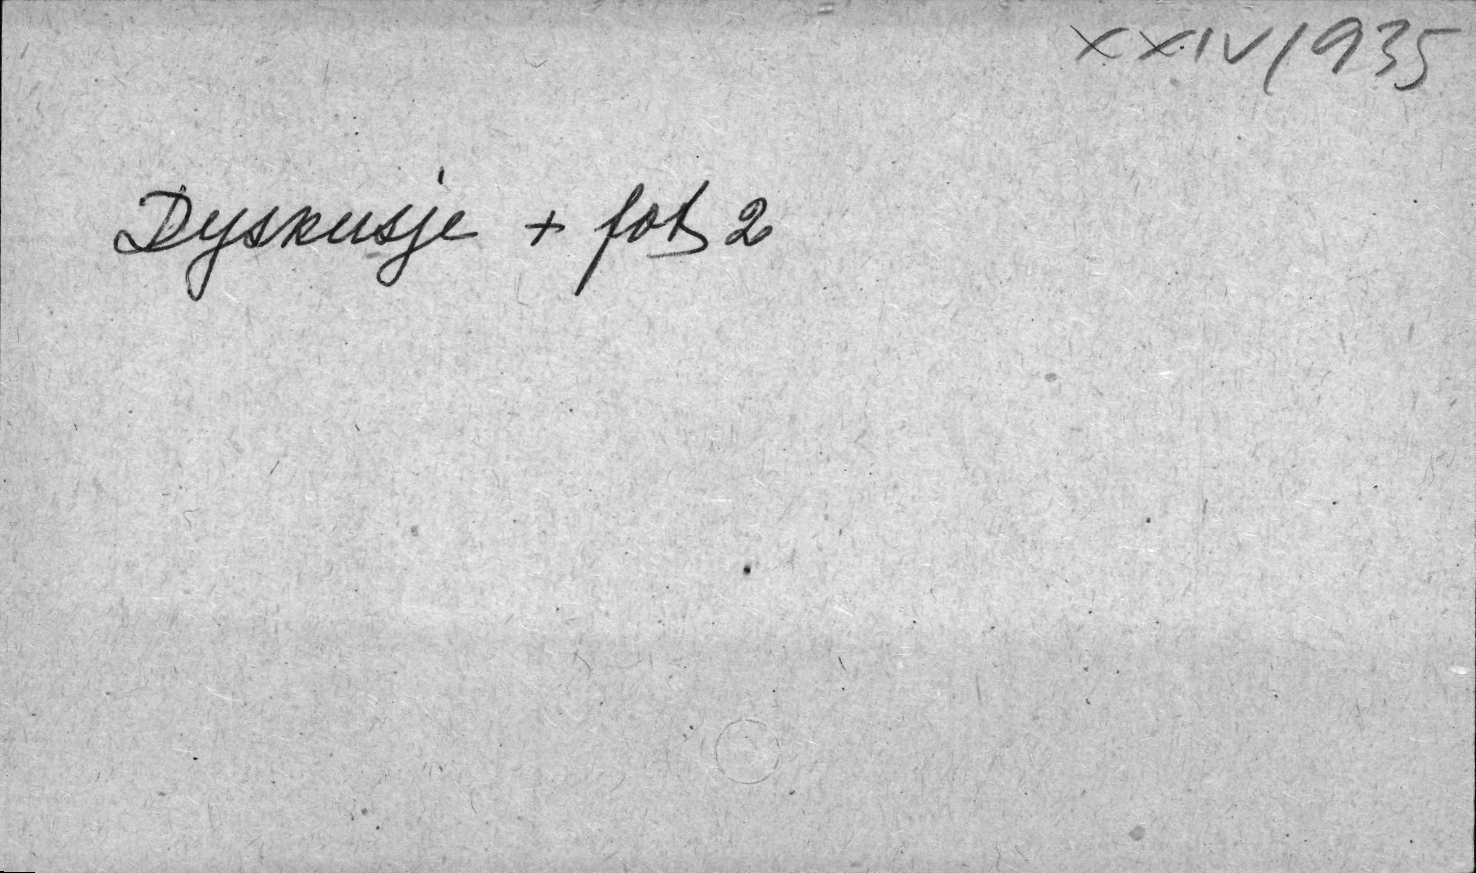 XXIV/935
Dyskusje + fot 2